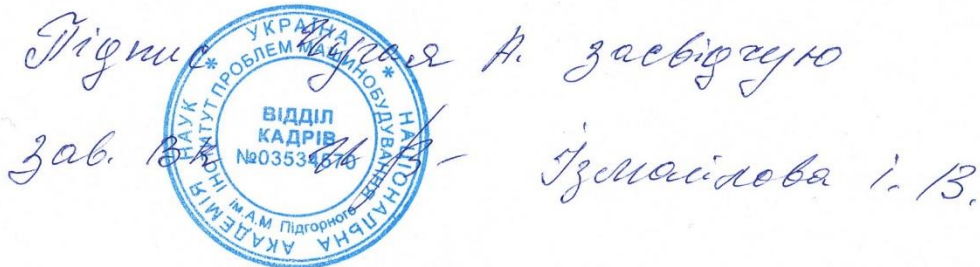 Підпис А. засвідчую
зав. ВК Ізмайлова І. В.
УКРАЇНА * НАЦІОНАЛЬНА АКАДЕМІЯ НАУК *
ІНСТИТУТ ПРОБЛЕМ МАШИНОБУДУВАННЯ
ім.А.М Підгорного
ВІДДІЛ
КАДРІВ